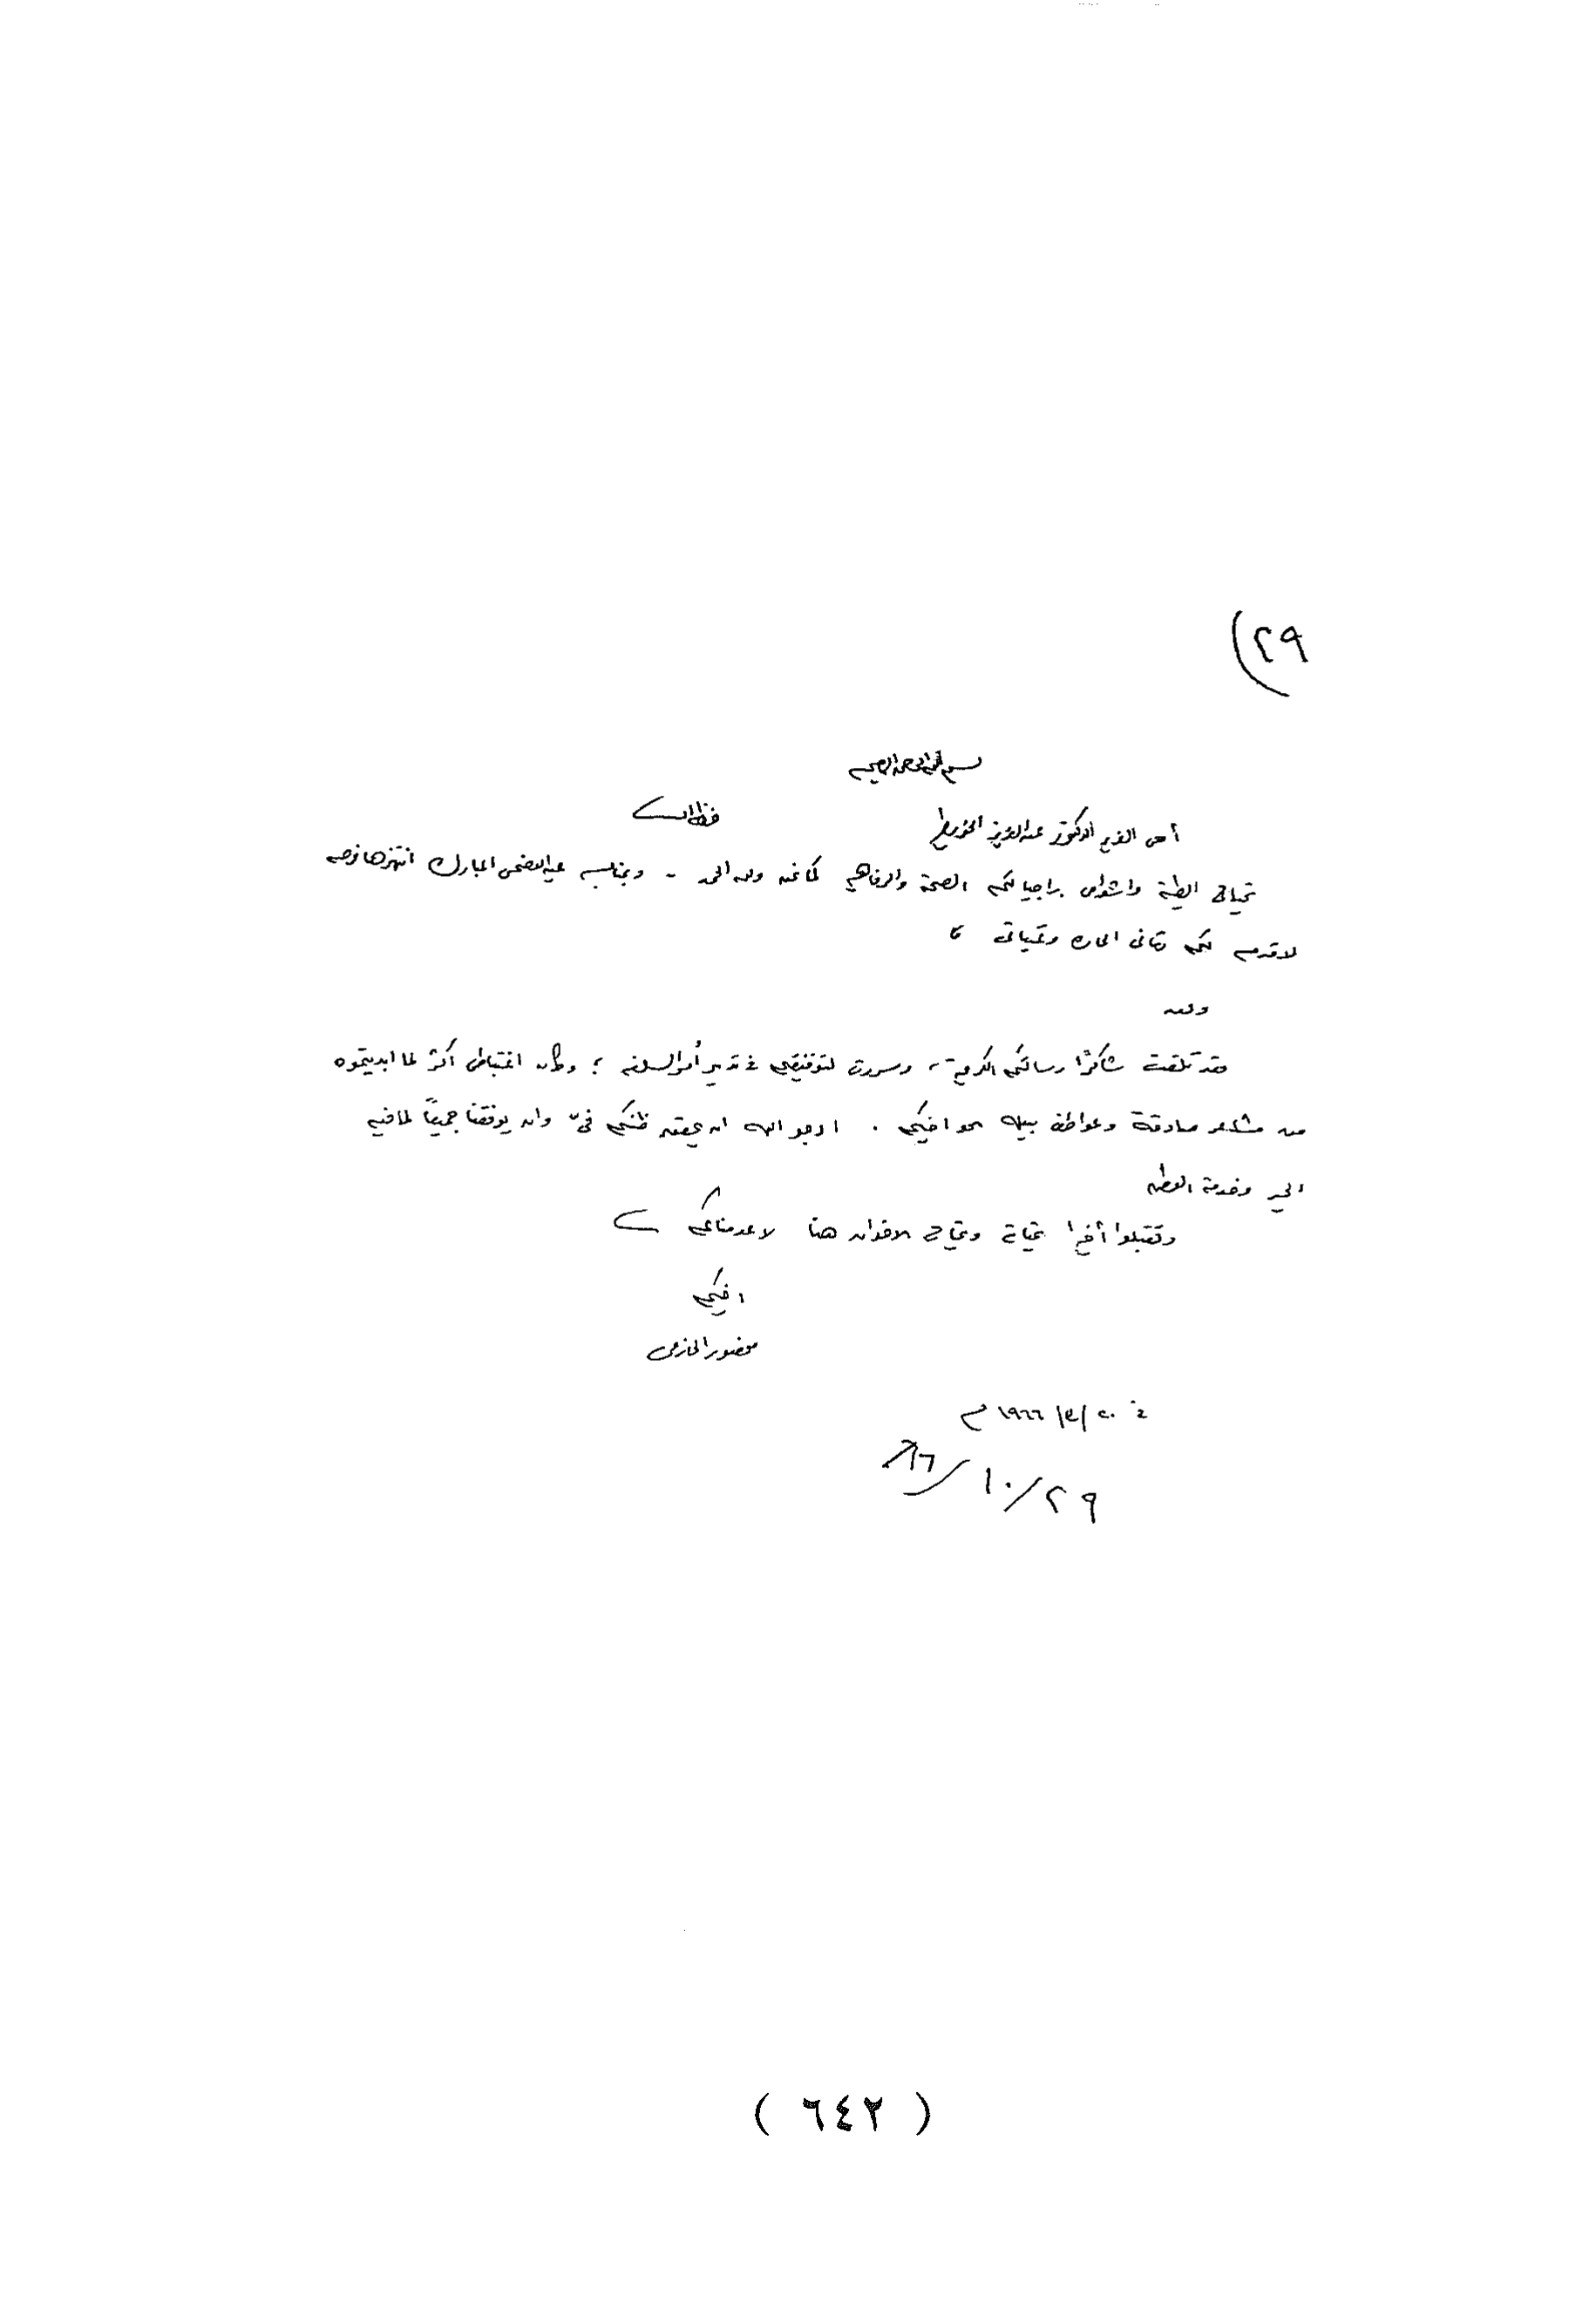 ٢٩)
بسم الله الرحمن الرحيم
أخي العزيز الدكتور عبدالعزيز الخويطر
حفظه الله
تحياتي الطيبة واشواقي راجيا لكم الصحة والرفاهية كما نحن ولله الحمد - وبمناسبة عيد الاضحى المبارك انتهزها فرصه
لاقدم لكم تهاني الحاره وتمنياتي ،
وبعد
فقد تلقيت شاكرًا رسالتكم الكريمة، وسررت لتوفيقي في تدبير أمر السلفه ؛ وكان اغتباطي أكثر لما ابديتموه
من مشاعر صادقة وعواطف نبيله نحو اخيكم . ارجو الله ان يحقق ظنكم فيّ وان يوفقنا جميعًا لما فيه
الخير وخدمة الوطن
وتقبلوا أخيرا تحياتي وتحيات الاخوان هنا لا عدمناكم
اخيكم
منصور الحازمي
١٩٦٦ م
٢٩/١٠/٦٦
( ٦٤٢ )